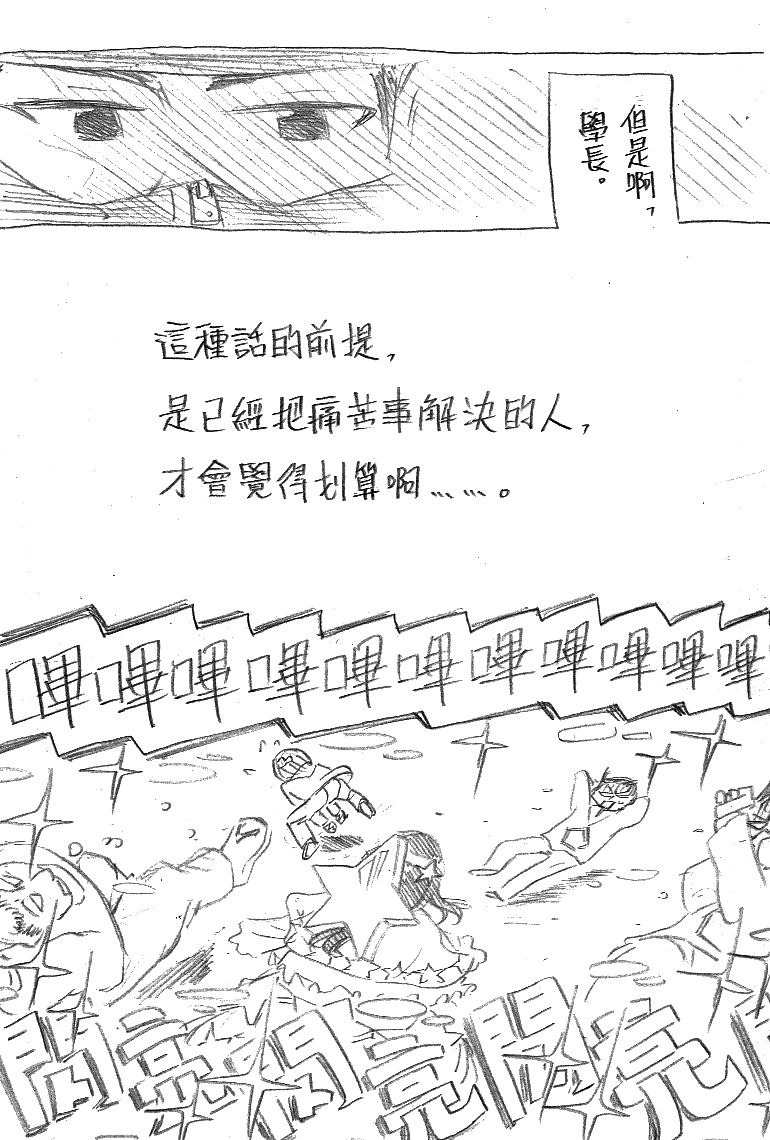 但是啊，
學長。
這種話的前提，
是已經把痛苦事解決的人，
才會覺得划算啊……。
嗶嗶嗶嗶嗶嗶嗶嗶嗶嗶嗶
閃亮閃亮閃亮